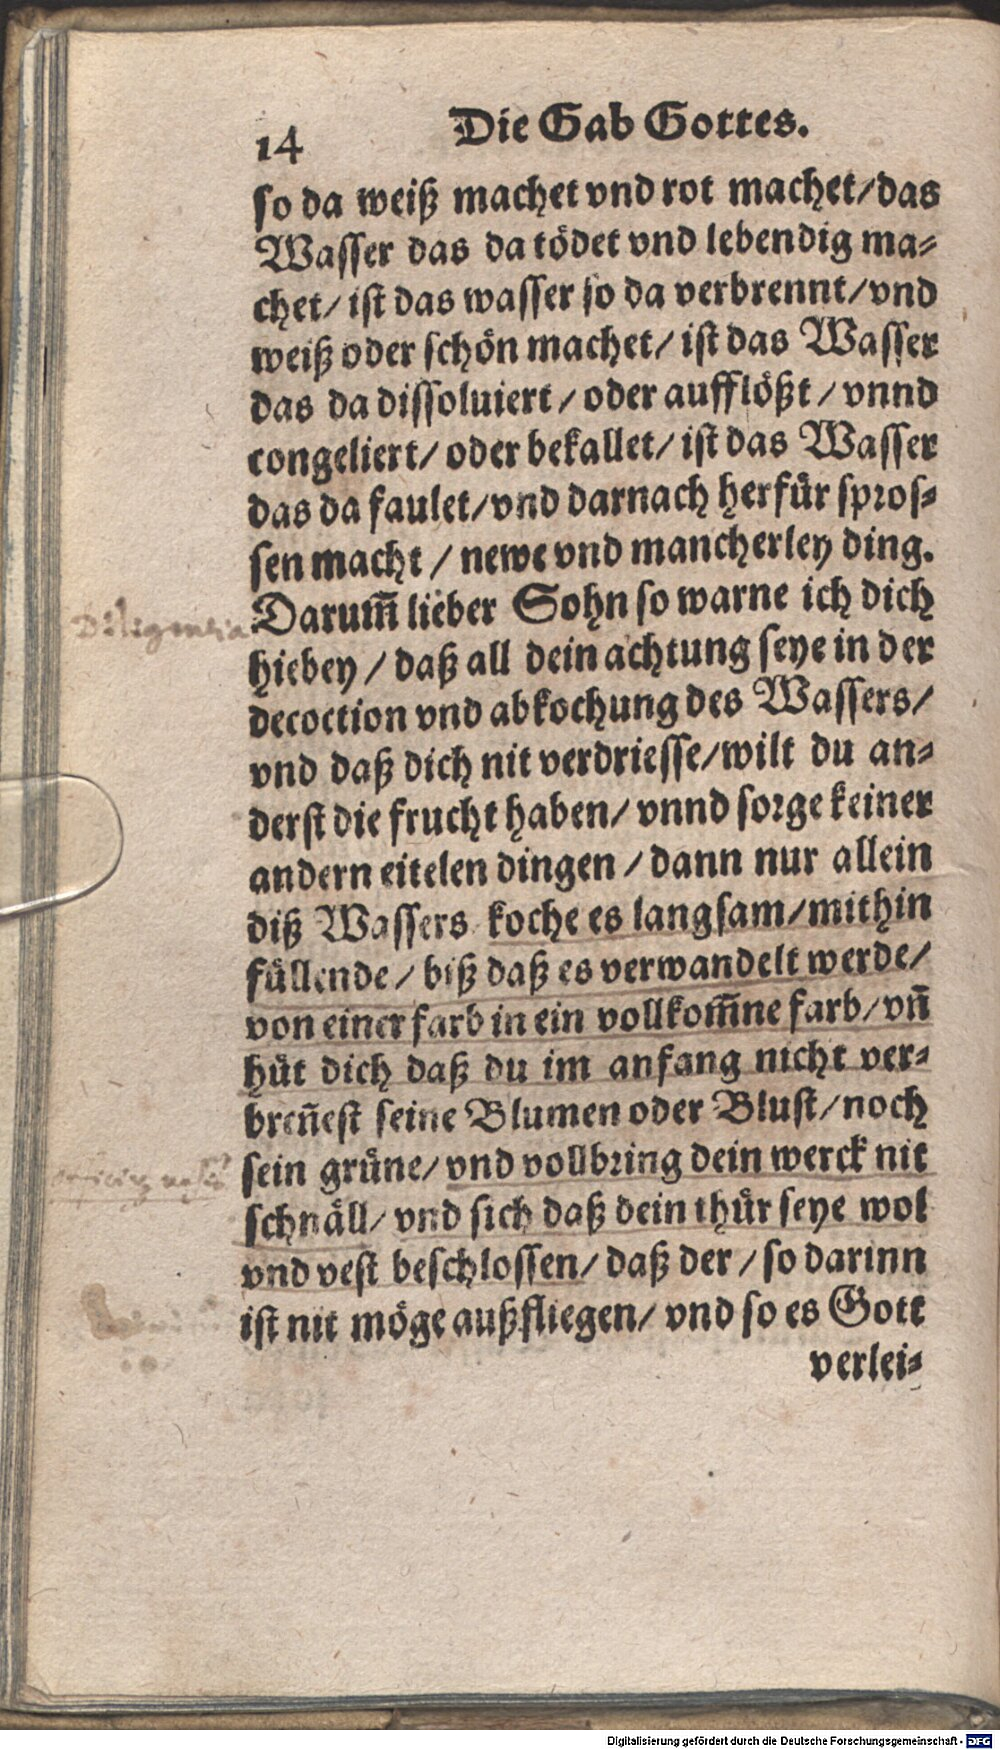 14 Die Gab Gottes.
so da weiß machet vnd rot machet/das
Wasser das da tödet vnd lebendig ma⸗
chet/ ist das wasser so da verbrennt/vnd
weiß oder schön machet/ ist das Wasser
das da dissoluiert/ oder aufflößt/ vnnd
congeliert/ oder bekallet/ ist das Wasser
das da faulet/vnd darnach herfür spros⸗
sen macht/ newe vnd mancherley ding.
Darum̃ lieber Sohn so warne ich dich
hiebey/ daß all dein achtung seye in der
decoction vnd abkochung des Wassers/
vnd daß dich nit verdriesse/wilt du an⸗
derst die frucht haben/ vnnd sorge keiner
andern eitelen dingen/ dann nur allein
diß Wassers koche es langsam/mithin
füllende/ biß daß es verwandelt werde/
von einer farb in ein vollkom̃ne farb/vñ
hüt dich daß du im anfang nicht ver⸗
breñest seine Blumen oder Blust/noch
sein grüne/ vnd vollbring dein werck nit
schnäll/ vnd sich daß dein thür seye wol
vnd vest beschlossen/ daß der/ so darinn
ist nit möge außfliegen/ vnd so es Gott
verlei⸗
Digitalisierung gefördert durch die Deutsche Forschungsgemeinschaft - DFG